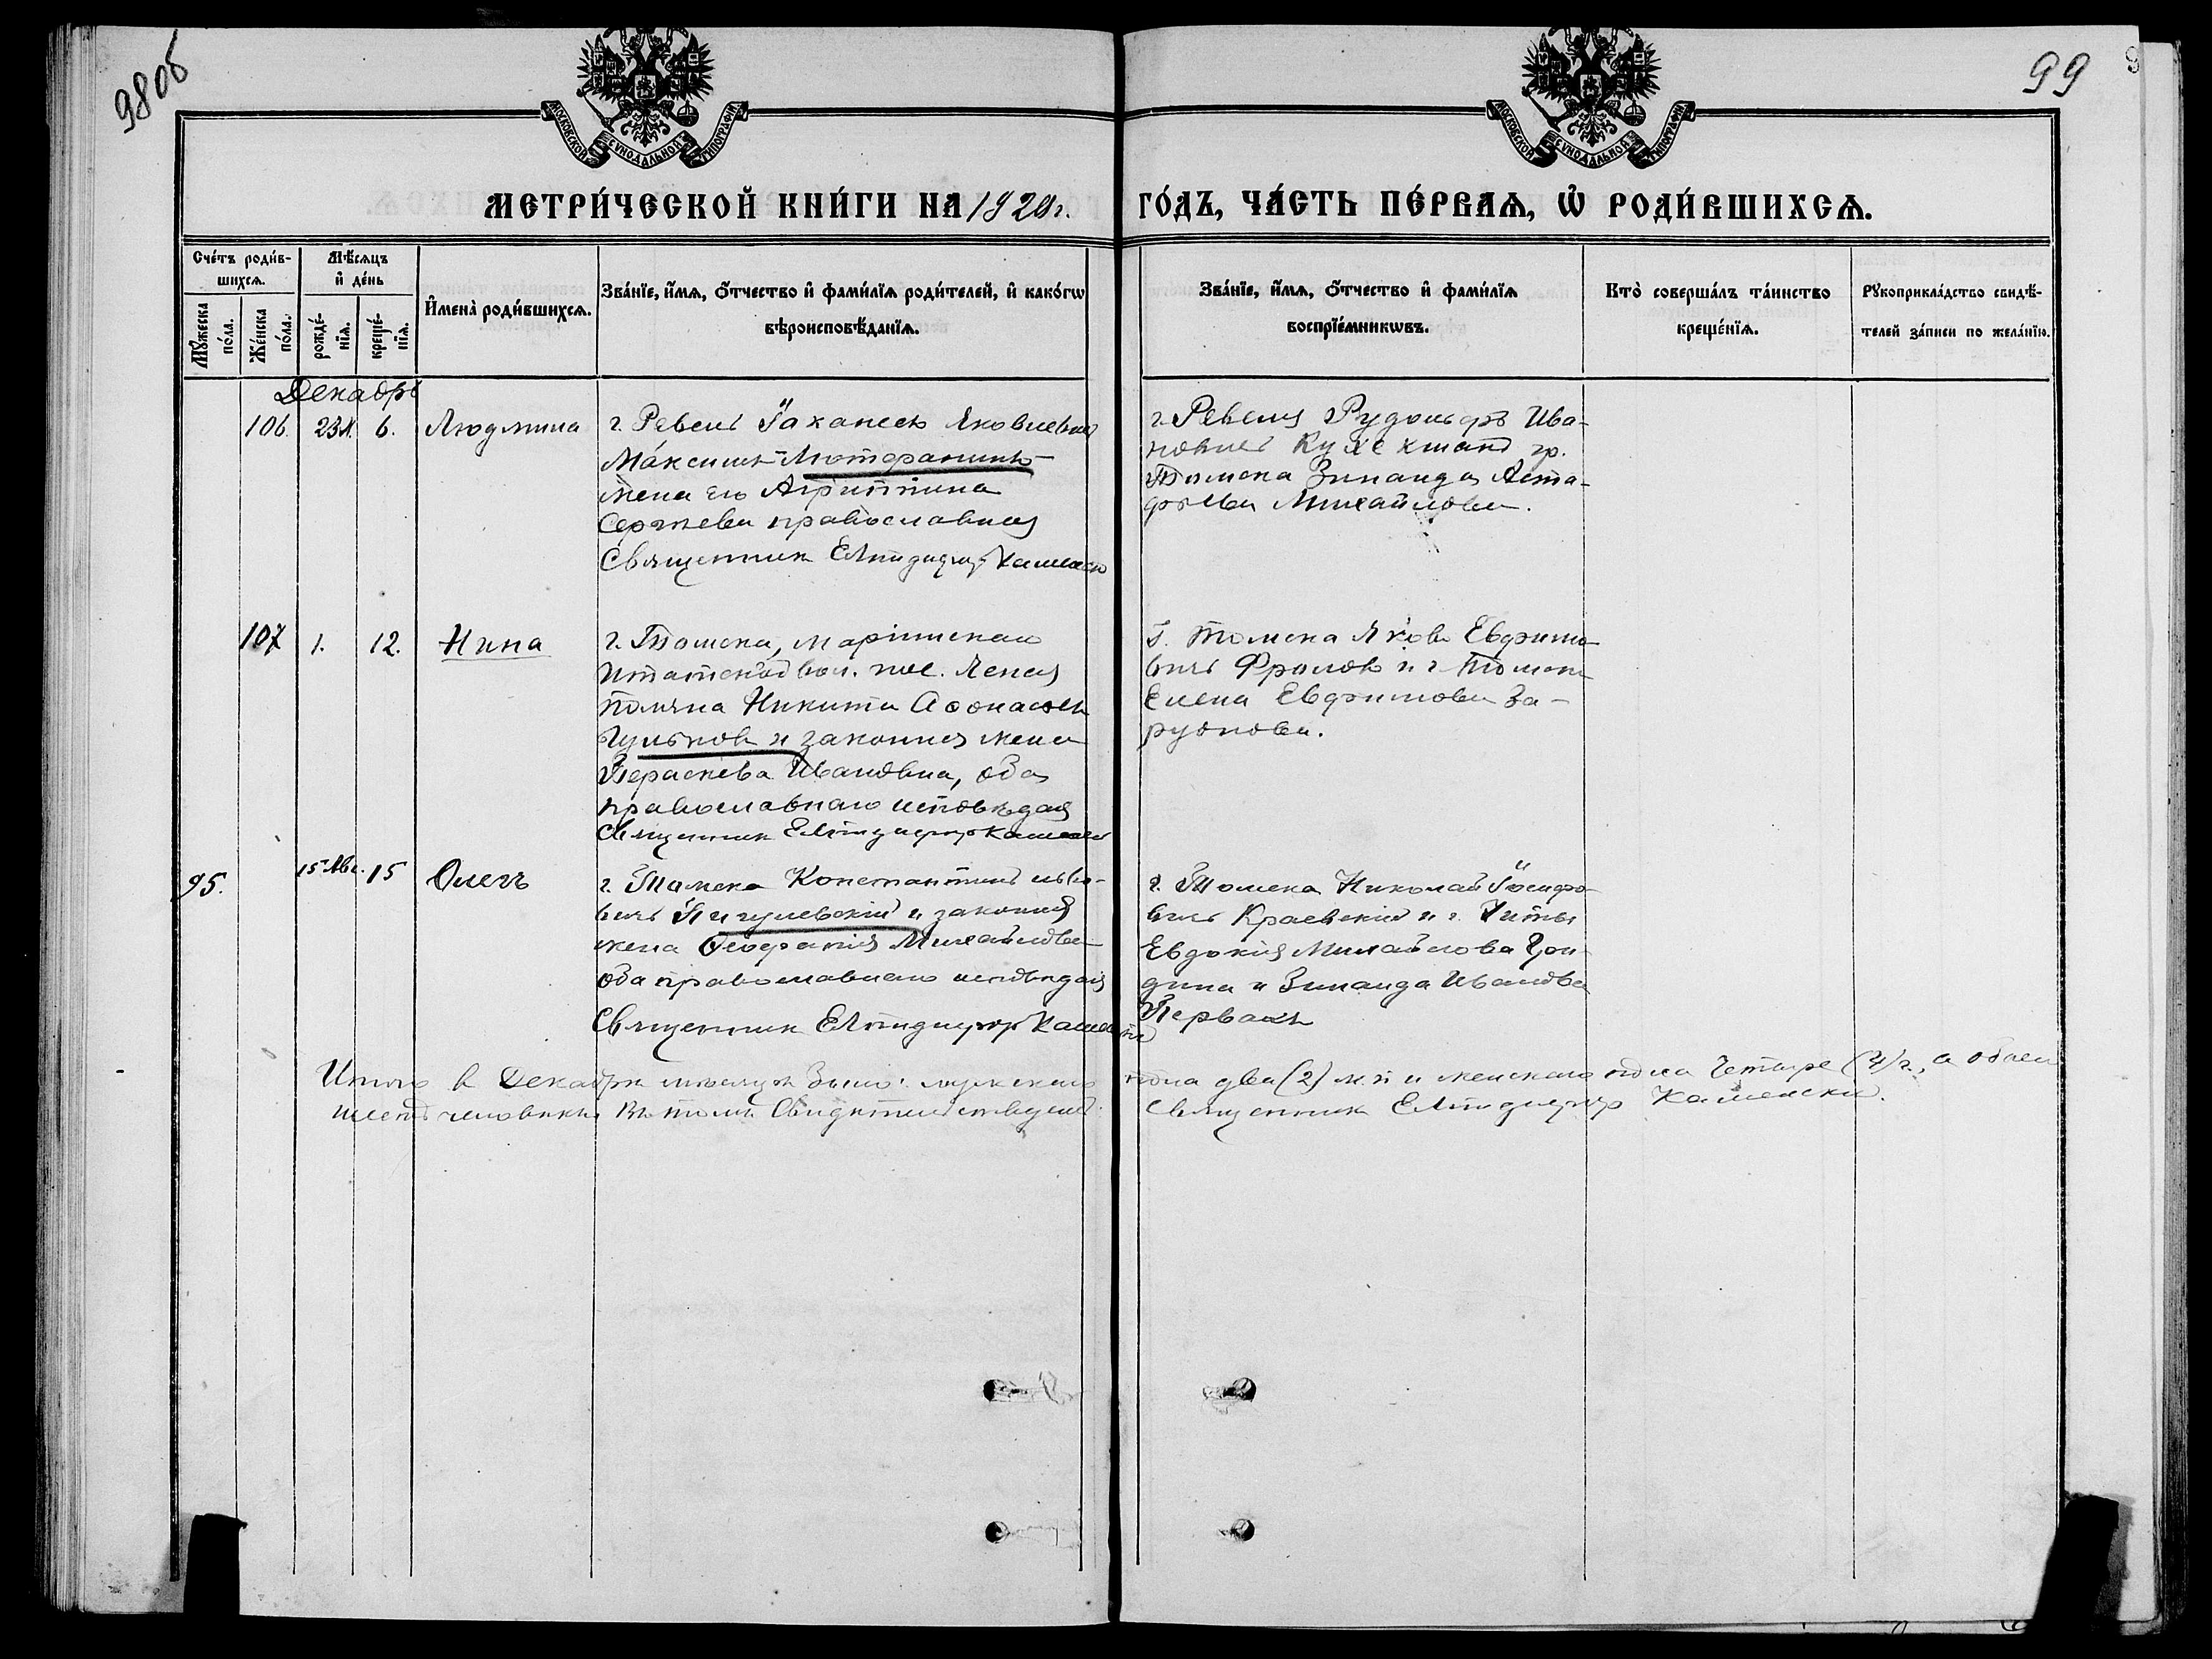 98 об
99
МОСКОВСКОЙ СѴНОДАЛЬНОЙ ТИПОГРАФІИ
МОСКОВСКОЙ СѴНОДАЛЬНОЙ ТИПОГРАФІИ
МЕТРИ́ЧЕСКОЙ КНИ́ГИ НА 1920 г.
ГО́ДЪ, ЧА́СТЬ ПЕ́РВАѦ, Ѡ҆ РОДИ́ВШИХСѦ.
Сче́тъ роди́в-
шихсѧ.
Мꙋ́жеска по́ла.
Же́нска по́ла.
Мѣ́сѧцъ
и҆ де́нь
рожде́-нїѧ.
креще́-нїѧ.
И҆мена̀ роди́вшихсѧ.
Зва́нїе, и҆́мѧ, ѻ҆́тчество и҆ фами́лїѧ роди́телей, и҆ како́гѡ
вѣроисповѣ́данїѧ.
Зва́нїе, и҆́мѧ, ѻ҆́тчество и҆ фами́лїѧ
воспрїе́мникѡвъ.
Кто̀ соверша́лъ та́инство
креще́нїѧ.
Рꙋкоприкла́дство свидѣ́-
телей за́писи по жела́нїю.
Декабрь
106. 23 6. Людмила
г. Ревель Іоханесъ Яковлевич
Максинг Лютеранинъ
жена его Агриппина
Сергѣева православная
Священник Елпидифор Каменск
г. Ревеля Рудольфъ Ива-
новичъ гр.
Томска Зинаида Аста-
фьева Михайлова.
107 1. 12. Нина
г. Томска, Маріинскаго
Итатской вол. пос. Ясная
Поляна Никита Афонасьев
Гульков и законная жена
Параскева Ивановна, оба
православнаго исповѣдан
Священник Елпидифор Каменск
г. Томска Яковъ Евфимо-
вичъ Фролов и г. Томска
Елена Евфимова За-
рубнова.
95. 15 Авг. 15 Олегъ
г. Томска Константинъ Льво-
вичъ Пигулевскій и законная
жена Феофанія Михайлова
оба православнаго исповѣдан
Священник Елпидифор Каменск
г. Томска Николай Іосифо-
вичъ Краевскій и г. Читы
Евдокія Михайлова Гон-
дина и Зинаида Иванова
Первакъ
Итого в Декабрѣ мѣсяцѣ было: мужскаго пола два (2) м. п. и женскаго пола четыре (4) г., а обоего
шесть человѣкъ, въ томъ свидѣтельствуетъ Священник Елпидифор Каменски.